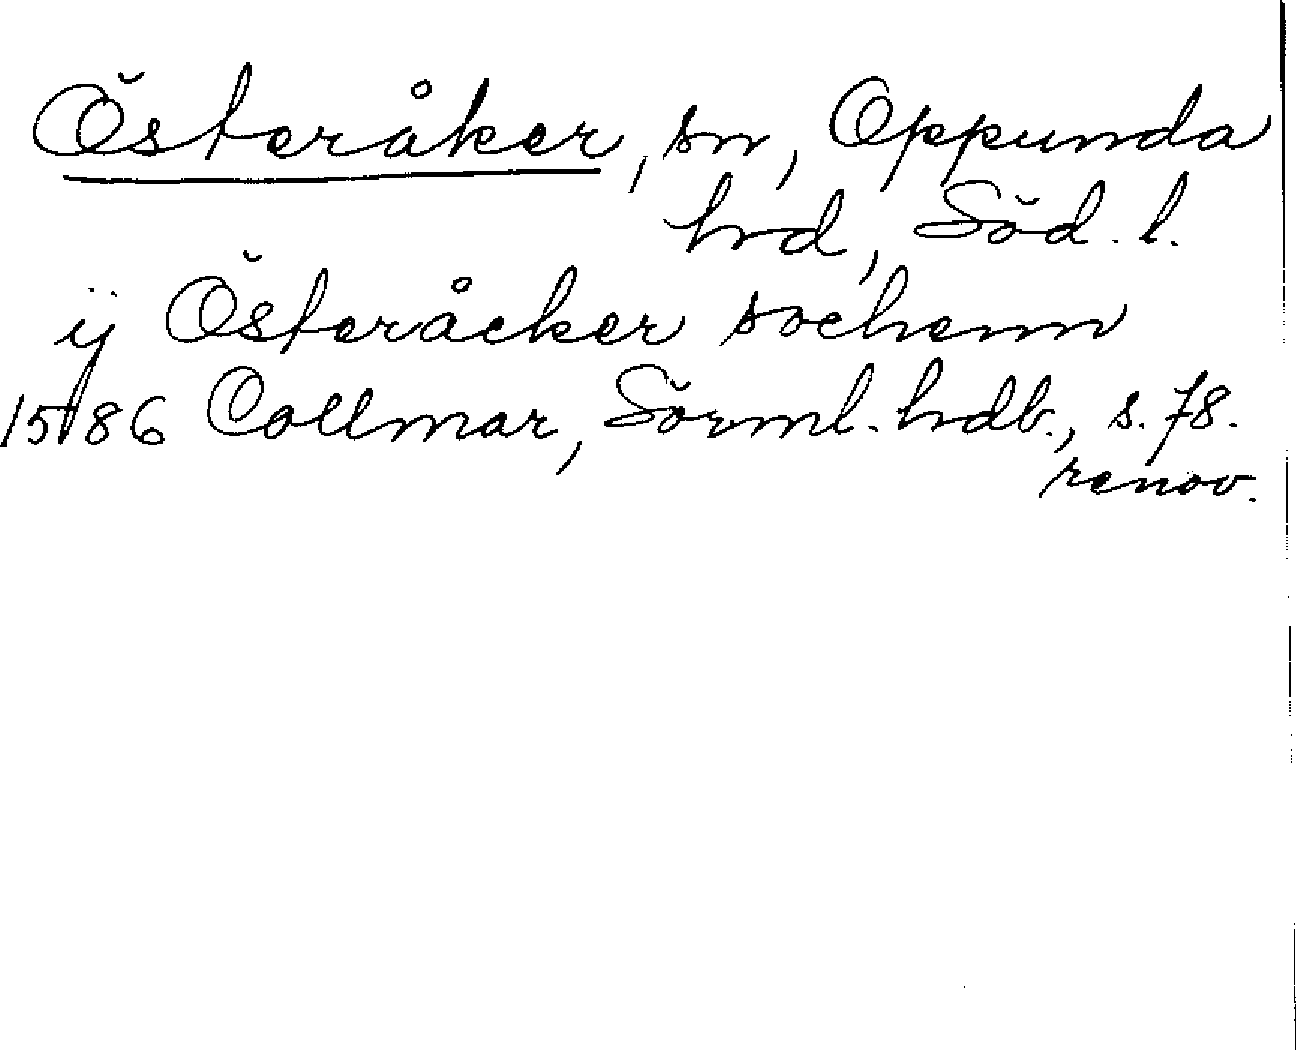 Österåker, sn, Oppunda
hrd, Söd. l.
ÿ Österåcker sochenn
1586 Collmar, Sörml. hdb., s. 78.
renov.